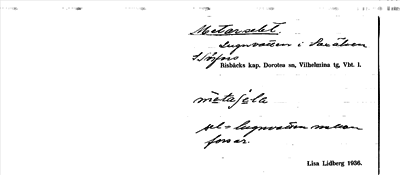 Metarselet.
Lugnvatten i Saxälven
Risbäcks kap. Dorotea sn, Vilhelmina tg, Vbt. l.
sel = lugnvatten mellan
forsar.
Lisa Lidberg 1936.